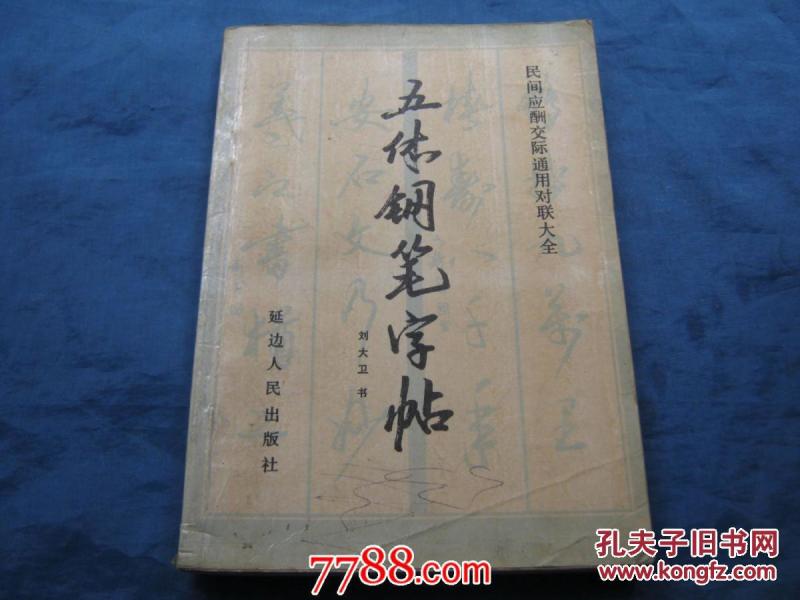 民间应酬交际通用对联大全
五体钢笔字帖
刘大卫 书
延边人民出版社
7788.com
孔夫子旧书网
www.kongfz.com